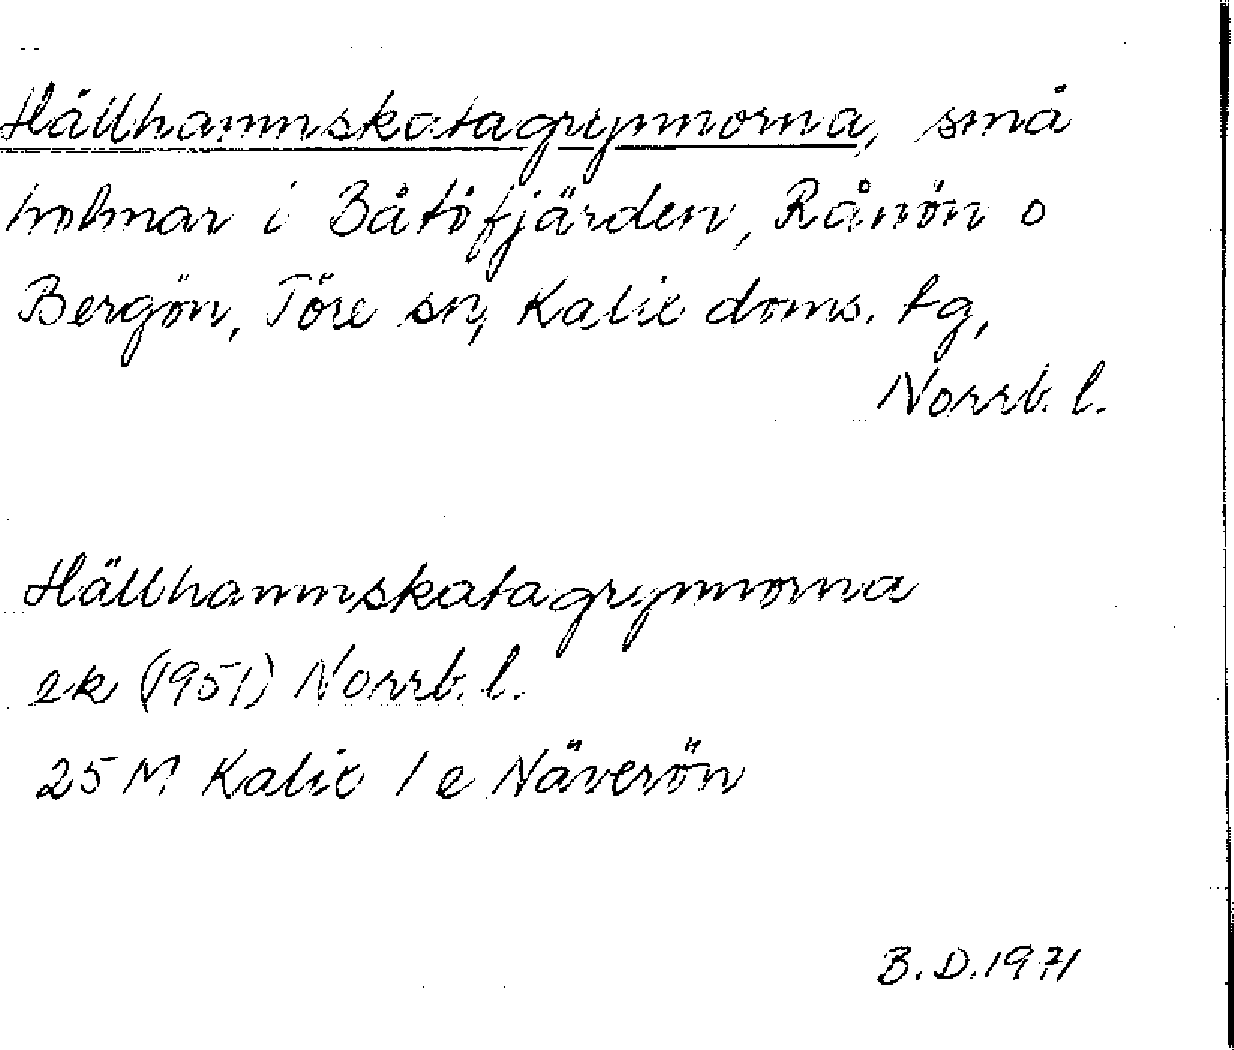 Hällhamnskatagrynnorna, små
holmar i Båtöfjärden, Rånön o
Bergön, Töre sn, Kalix doms. tg,
Norrb. l.
Hällhamnskatagrynnorna
ek (1951) Norrb. l.
25 M Kalix 1 e Näverön
B. D. 1971